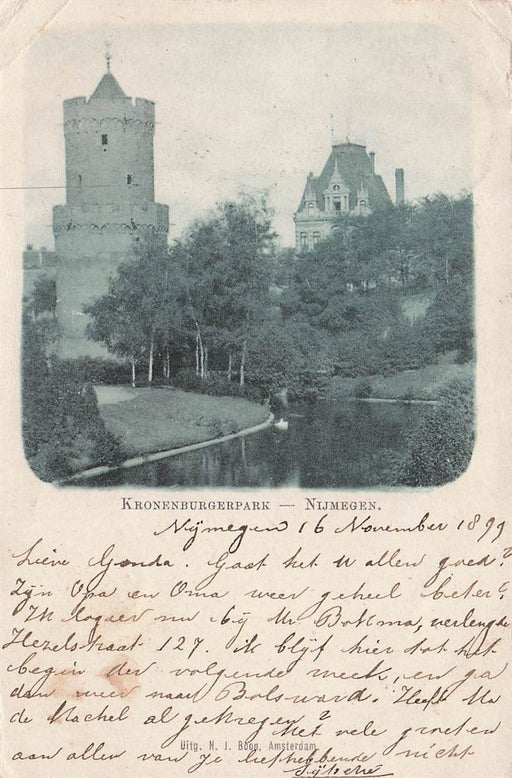 KRONENBURGERPARK — NIJMEGEN.
Nijmegen 16 November 1899
Lieve Gonda. Gaat het U allen goed?
Zijn Opa en Oma weer geheel beter?
Ik logeer nu bij Mr Bokma, verlengde
Hezelstraat 127. ik blijf hier tot het
begin der volgende week, en ga
dan weer naar Bolsward. Heeft Ma
de Machel al gekregen?
Met vele groeten
Uitg. N. J. Boon, Amsterdam.
aan allen van je liefhebbende nicht